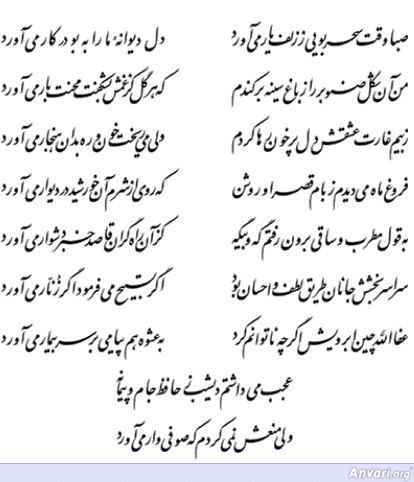 صبا وقت سحر بویی ز زلف یار می‌آورد
دل دیوانهٔ ما را به بو در کار می‌آورد
من آن شکل صنوبر را ز باغ سینه برکندم
که هر گل کز غمش بشکفت محنت بار می‌آورد
ز بیم غارت عشقش دل پرخون رها کردم
ولی می‌ریخت خون و ره بدان هنجار می‌آورد
فروغ ماه می‌دیدم ز بام قصر او روشن
که روی از شرم آن خورشید در دیوار می‌آورد
به قول مطرب و ساقی برون رفتم گه و بیگه
کز آن راه گران قاصد خبر دشوار می‌آورد
سراسر بخشش جانان طریق لطف و احسان بود
اگر تسبیح می‌فرمود اگر زُنّار می‌آورد
عفاالله چین ابرویش اگر چه ناتوانم کرد
به عشوه هم پیامی بر سر بیمار می‌آورد
عجب می‌داشتم دیشب ز حافظ جام و پیمانه
ولی منعش نمی‌کردم که صوفی وار می‌آورد
Anvari.org